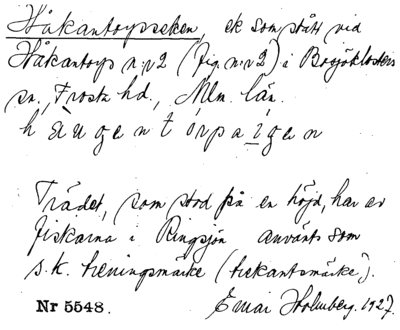 Håkantorpseken, ek som stått vid
Håkantorp n:r 2 (fig. n:r 2) i Bosjökloster
sn., Frosta hd., Mlm. län.
Trädet, som stod på en höjd, har av
fiskarna i Ringsjön använts som
s.k. meningsmärke (trekantsmärke).
Nr 5548. Emar Holmberg. 1927.